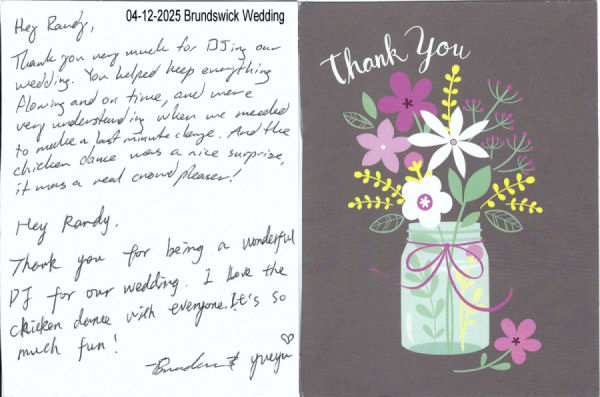 04-12-2025 Brundswick Wedding
Hey Randy,
Thank you very much for DJing our
wedding. You helped keep everything
flowing and on time, and were
very understanding when we needed
to make a last minute change. And the
chicken dance was a nice surprise,
it was a real crowd pleaser!
Hey Randy,
Thank you for being a wonderful
DJ for our wedding. I love the
chicken dance with everyone. It's so
much fun!
& yueyu
Thank You